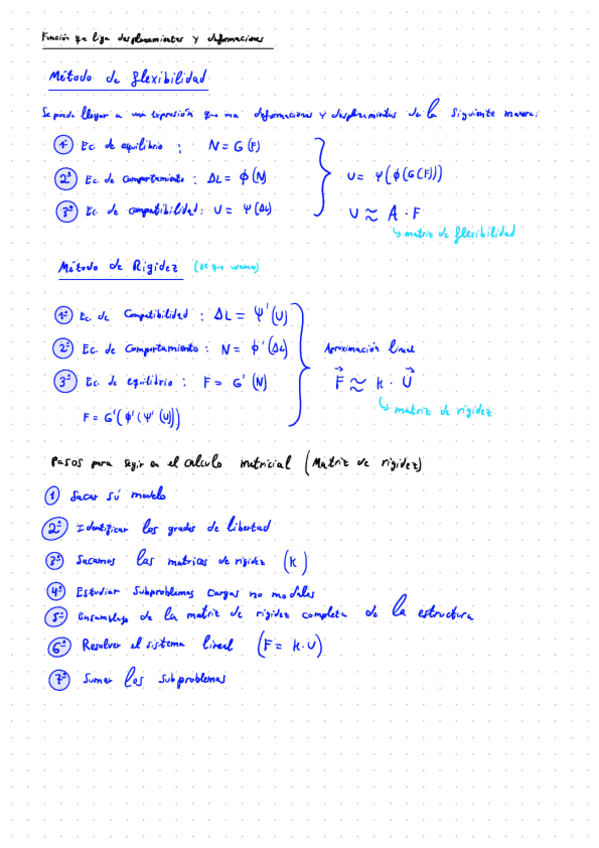 Función que liga desplazamientos y deformaciones
Método de flexibilidad
Se puede llegar a una expresión que una deformaciones y desplazamientos de la siguiente manera:
1º Ec. de equilibrio : N = G (F)
2º Ec. de comportamiento : ΔL = ϕ (N)
3º Ec. de compatibilidad : U = Ψ (ΔL)
U = Ψ(ϕ(G(F)))
U ≈ A · F
↳ matriz de flexibilidad
Método de Rigidez (de que usamos)
1º Ec. de Compatibilidad : ΔL = Ψ' (U)
2º Ec. de Comportamiento : N = ϕ' (ΔL)
3º Ec. de equilibrio : F = G' (N)
F = G'(ϕ'(Ψ'(U)))
Aproximación lineal
F⃗ ≈ K · U⃗
↳ matriz de rigidez
Pasos para seguir en el calculo matricial (Matriz de rigidez)
1 Sacar sú modelo
2º Identificar los grados de libertad
3º Sacamos las matrices de rigidez (K)
4º Estudiar subproblemas cargas no modales
5º ensamblaje de la matriz de rigidez completa de la estructura
6º Resolver el sistema lineal (F = K·U)
7º Sumar los subproblemas